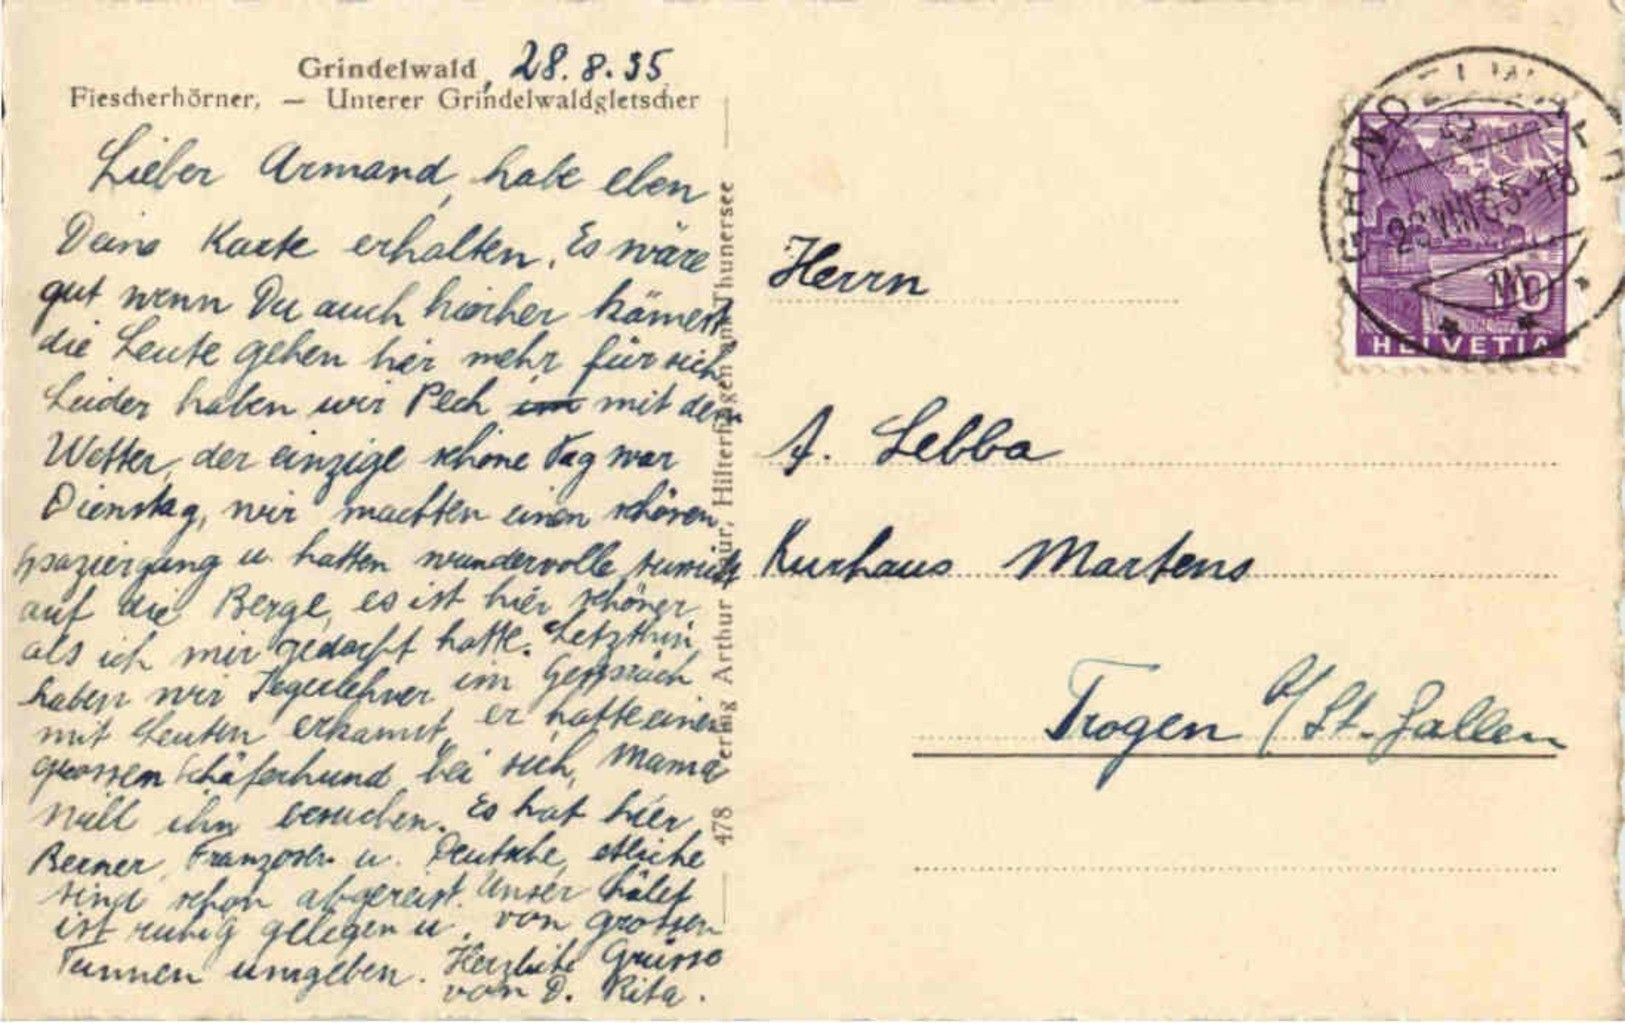 Grindelwald, 28.8.35
Fiescherhörner, — Unterer Grindelwaldgletscher
Lieber Armand, habe eben
Deine Karte erhalten. Es wäre
gut wenn Du auch hierher kämest
die Leute gehen hier mehr für sich
Leider haben wir Pech mit dem
Wetter, der einzige schöne Tag war
Dienstag, wir machten einen schönen
Spaziergang u. hatten wundervolle Aussicht
auf die Berge, es ist hier schöner
als ich mir gedacht hatte. Letzthin
haben wir im Gespräch
mit Leuten erkannt, er hatte einen
grossen Schäferhund bei sich, Mama
will ihn besuchen. Es hat hier
Berner, Franzosen u. Deutsche, etliche
sind schon abgereist. Unser Hôtel
ist ruhig gelegen u. von grossen
Tannen umgeben. Herzliche Grüsse
von D. Rita.
478 Verlag Arthur Baur, Hilterfingen am Thunersee
GRINDELWALD
28.VIII.35-18
10
HELVETIA
Herrn
A. Lebba
Kurhaus Martens
Trogen b/St. Gallen